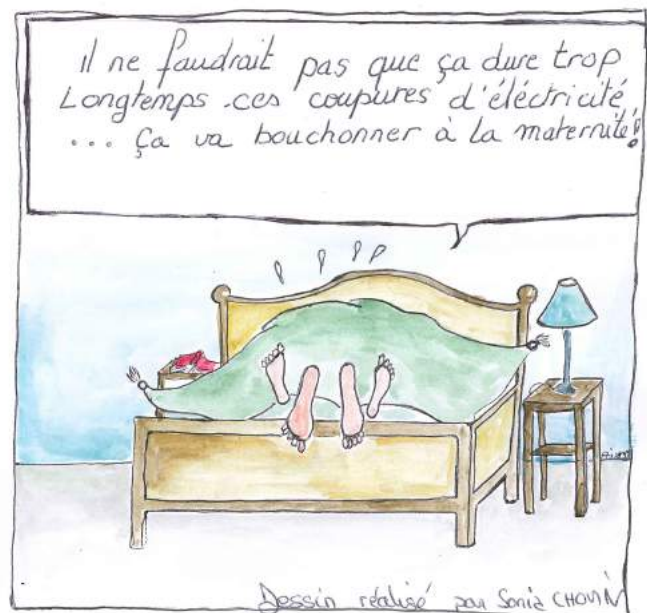 il ne faudrait pas que ça dure trop
Longtemps ces coupures d'éléctricité
... Ça va bouchonner à la maternité!
Dessin réalisé par Sonia